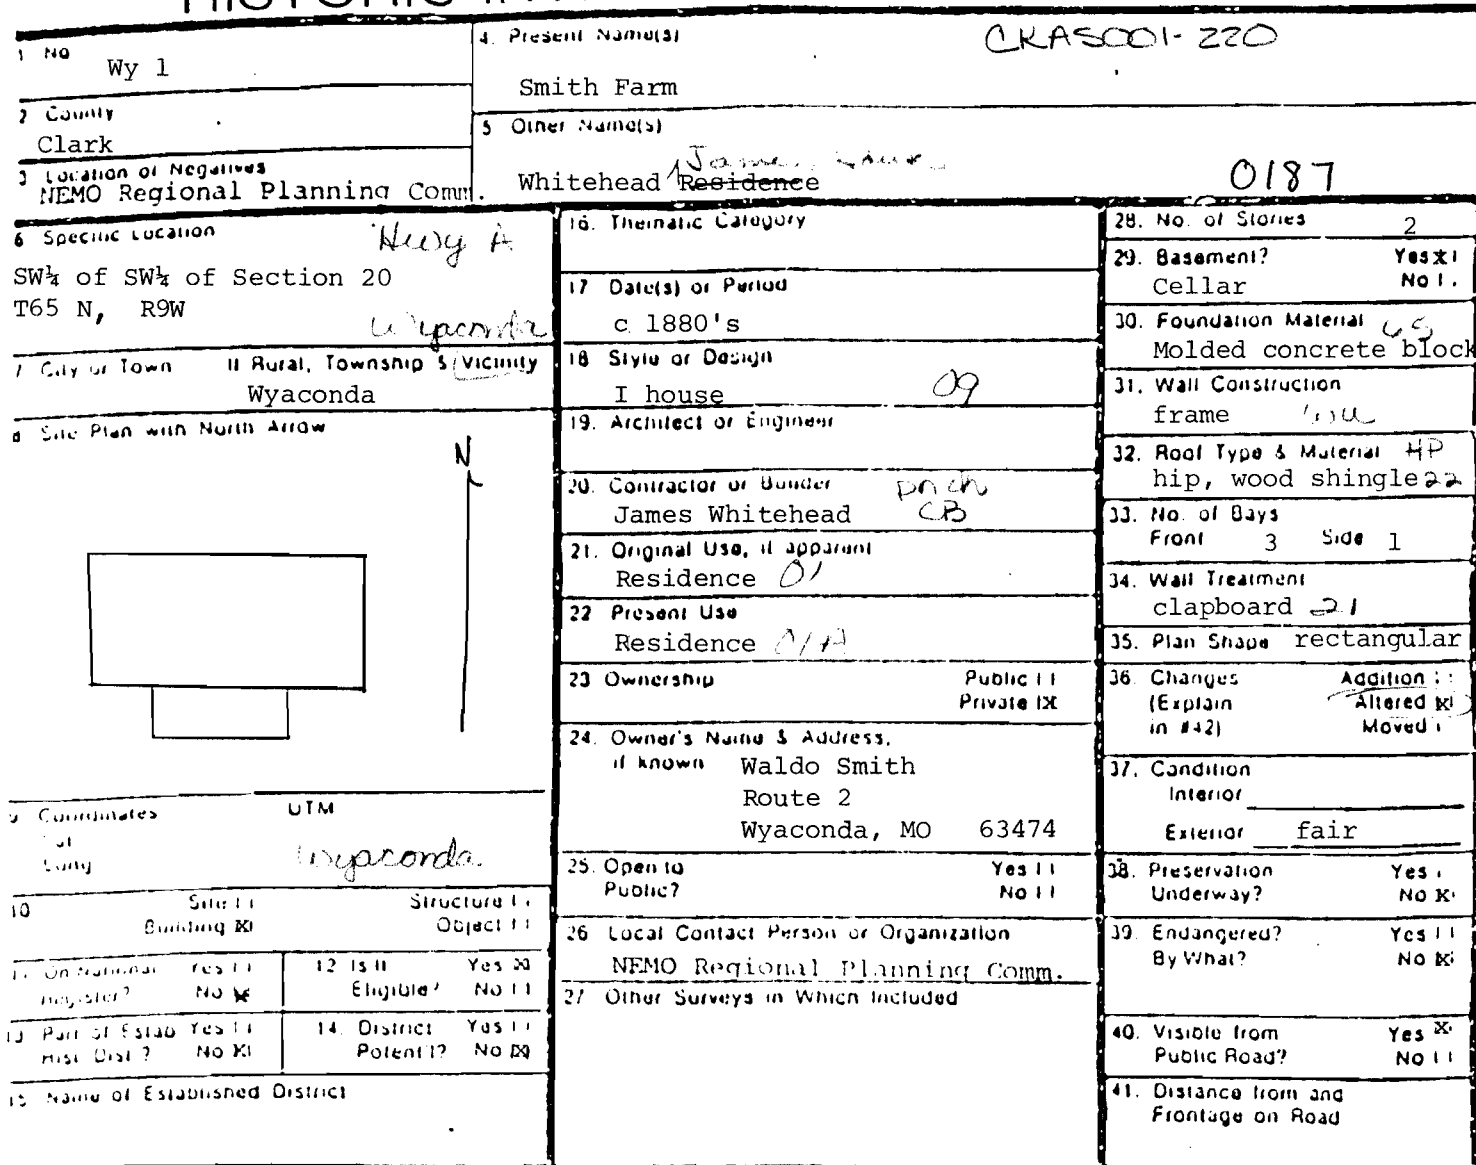 CKAS001-220
1 No
Wy 1
4. Present Name(s)
Smith Farm
2 County
Clark
5 Other Name(s)
Whitehead James Residence
0187
3 Location of Negatives
NEMO Regional Planning Comm.
6 Specific Location
Hwy A
SW¼ of SW¼ of Section 20
T65 N, R9W
Wyaconda
7 City or Town If Rural, Township & Vicinity
Wyaconda
8 Site Plan with North Arrow
N
9 Coordinates UTM
Lat
Long
Wyaconda
10 Site [ ] Structure [ ]
Building [X] Object [ ]
11 On National Yes [ ]
Register? No [X]
12 Is It Yes [X]
Eligible? No [ ]
13 Part of Estab Yes [ ]
Hist Dist? No [X]
14. District Yes [ ]
Potent'l? No [X]
15 Name of Established District
16. Thematic Category
17 Date(s) or Period
c 1880's
18 Style or Design
I house 09
19. Architect or Engineer
20. Contractor or Builder
James Whitehead
CB
21. Original Use, if apparent
Residence 01
22 Present Use
Residence 01A
23 Ownership Public [ ]
Private [X]
24. Owner's Name & Address,
if known Waldo Smith
Route 2
Wyaconda, MO 63474
25. Open to Yes [ ]
Public? No [ ]
26 Local Contact Person or Organization
NEMO Regional Planning Comm.
27 Other Surveys in Which Included
28. No. of Stories 2
29. Basement? Yes [X]
Cellar No [ ]
30. Foundation Material 65
Molded concrete block
31. Wall Construction
frame
32. Roof Type & Material HP
hip, wood shingle 22
33. No. of Bays
Front 3 Side 1
34. Wall Treatment
clapboard 21
35. Plan Shape rectangular
36. Changes Addition [ ]
(Explain Altered [X]
in #42) Moved [ ]
37. Condition
Interior
Exterior fair
38. Preservation Yes [ ]
Underway? No [X]
39. Endangered? Yes [ ]
By What? No [X]
40. Visible from Yes [X]
Public Road? No [ ]
41. Distance from and
Frontage on Road